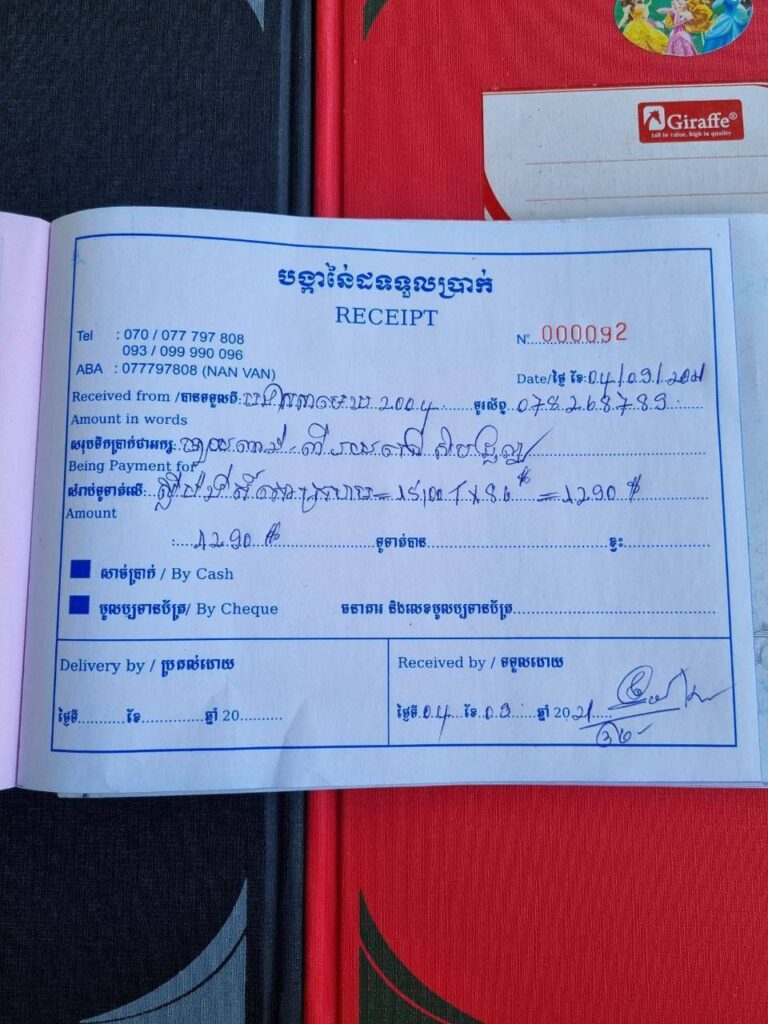 Giraffe®
tall in value, high in quality
បង្កាន់ដៃទទួលប្រាក់
RECEIPT
Tel : 070 / 077 797 808
093 / 099 990 096
ABA : 077797808 (NAN VAN)
Nº 000092
Date/ថ្ងៃ ខែ: 04/03/2021
Received from /បានទទួលពី: 2004 ទូរស័ព្ទ 078268789
Amount in words
សរុបទឹកប្រាក់ជាអក្សរ:
Being Payment for
សំរាប់ទូទាត់លើ: = 15,00T x 86$ = 1290$
Amount
: 1290$ ទូទាត់បាន ខ្វះ
សាច់ប្រាក់ / By Cash
មូលប្បទានប័ត្រ/ By Cheque ធនាគារ និងលេខមូលប្បទានប័ត្រ
Delivery by / ប្រគល់ដោយ
ថ្ងៃទី ខែ ឆ្នាំ 20
Received by / ទទួលដោយ
ថ្ងៃទី 04 ខែ 03 ឆ្នាំ 2021